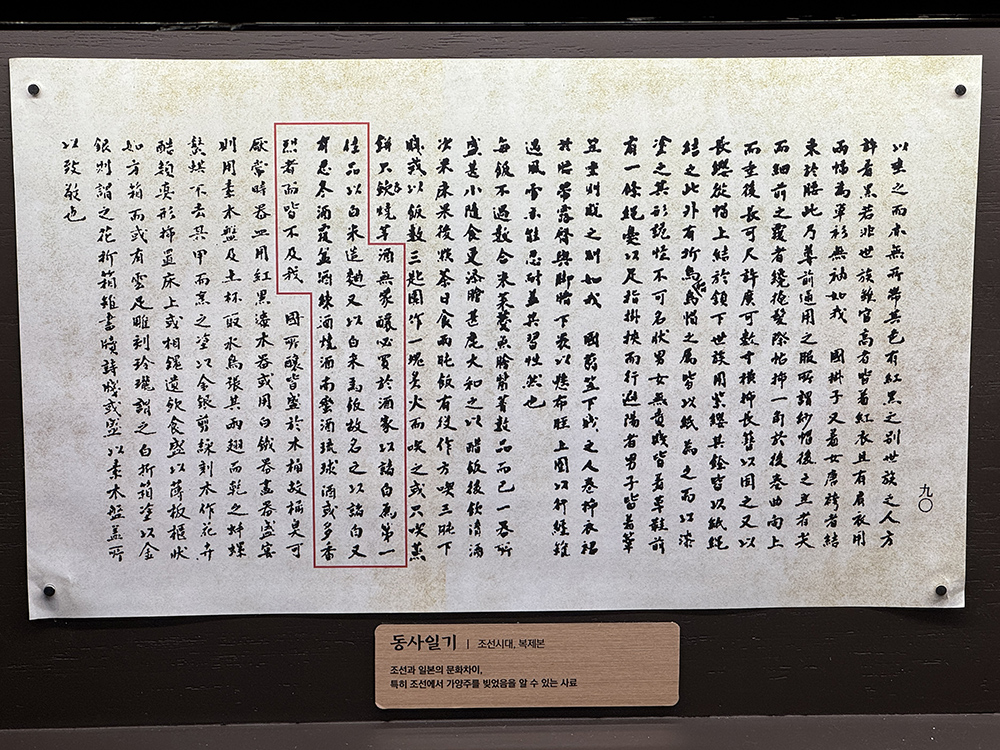 九〇
以垂之而本無所帶其色有紅黑之別世族之人方
許着黑若非世族雖官高者皆着紅衣且有肩衣用
兩幅爲單衫無袖如我 國掛子又着女唐誇者結
束於腰此乃尊前通用之服所謂紗帽後之立者尖
而細前之覆者纔掩髮際帖揷一角於後卷曲向上
而垂後長可尺許廣可數寸橫揷長簪以固之又以
長纓從帽上結於頷下世族用紫纓其餘皆以紙繩
結之此外有折烏烏帽之屬皆以紙爲之而以漆
塗之其形詭怪不可名狀男女無貴賤皆着草鞋前
有一條繩處以足指掛挾而行遮陽者男子皆着
笠則賤之別如我 國蒻笠下賤之人卷揷衣裾
於腰帶露臀與脚膝下裹以布脛上圍以行纏雖
遇風雪不能忍耐盖其習性然也
每飯不過數合米菜羹魚膾數品而已一器所
盛甚小隨食更添膾甚麁大和之以醋飯後飮淸酒
次果床床後茶日食兩時飯有役作方喫三時下
賤或以飯數三匙團作一塊炙火而喫之或只喫蒸
餠只飮燒芋酒無家釀必買於酒家以諸白爲第一
佳品以白米造麯又以白米爲飯故名之以諸白又
有忍冬酒覆盆酒練酒燒酒南蠻酒琉球酒或多香
烈者而皆不及我 國所釀皆盛於木桶故桶臭可
厭常時器皿用紅黑漆木器或用白鐵器畫器盛宴
則用素木盤及土杯取水鳥張其兩翅而乾之蚌螺
蟹烘不去其甲而烹之塗以金銀剪綵刻木作花卉
酷類眞形揷置床上或相饋遺飮食盛以薄板樻狀
如方箱而或有雲足雕刻玲瓏謂之白折箱塗以金
銀則謂之花折箱雖書牘詩牋或盛以素木盤盖所
以致敬也
동사일기 | 조선시대, 복제본
조선과 일본의 문화차이,
특히 조선에서 가양주를 빚었음을 알 수 있는 사료